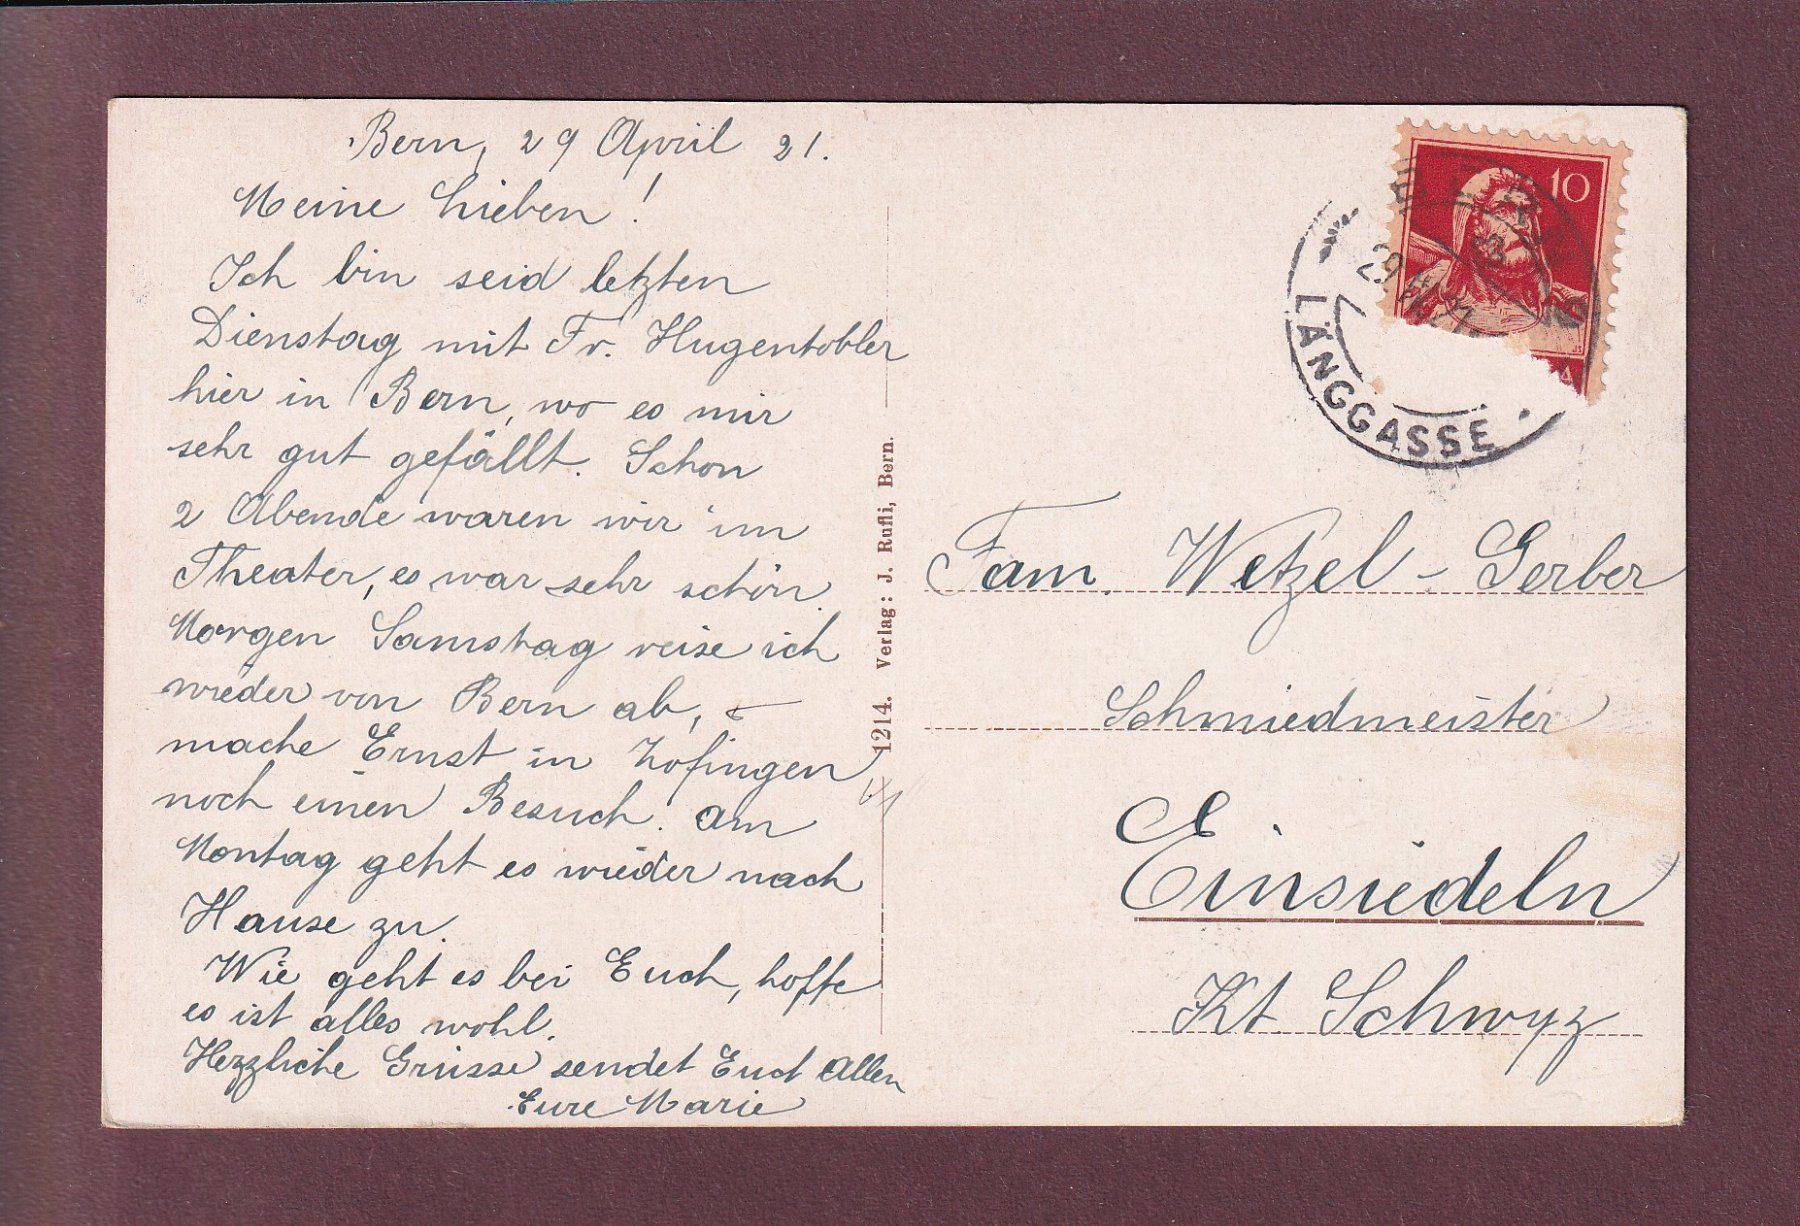 Bern, 29 April 21.
Meine Lieben!
Ich bin seid letzten
Dienstag mit Fr. Hugentobler
hier in Bern, wo es mir
sehr gut gefällt. Schon
2 Abende waren wir im
Theater, es war sehr schön.
Morgen Samstag reise ich
wieder von Bern ab,
mache Ernst in Zofingen
noch einen Besuch. Am
Montag geht es wieder nach
Hause zu.
Wie geht es bei Euch, hoffe
es ist alles wohl.
Herzliche Grüsse sendet Euch Allen
Eure Marie
1214. Verlag: J. Rufli, Bern.
10
LÄNGGASSE
Fam. Wetzel-Gerber
Schmiedmeister
Einsiedeln
Kt Schwyz